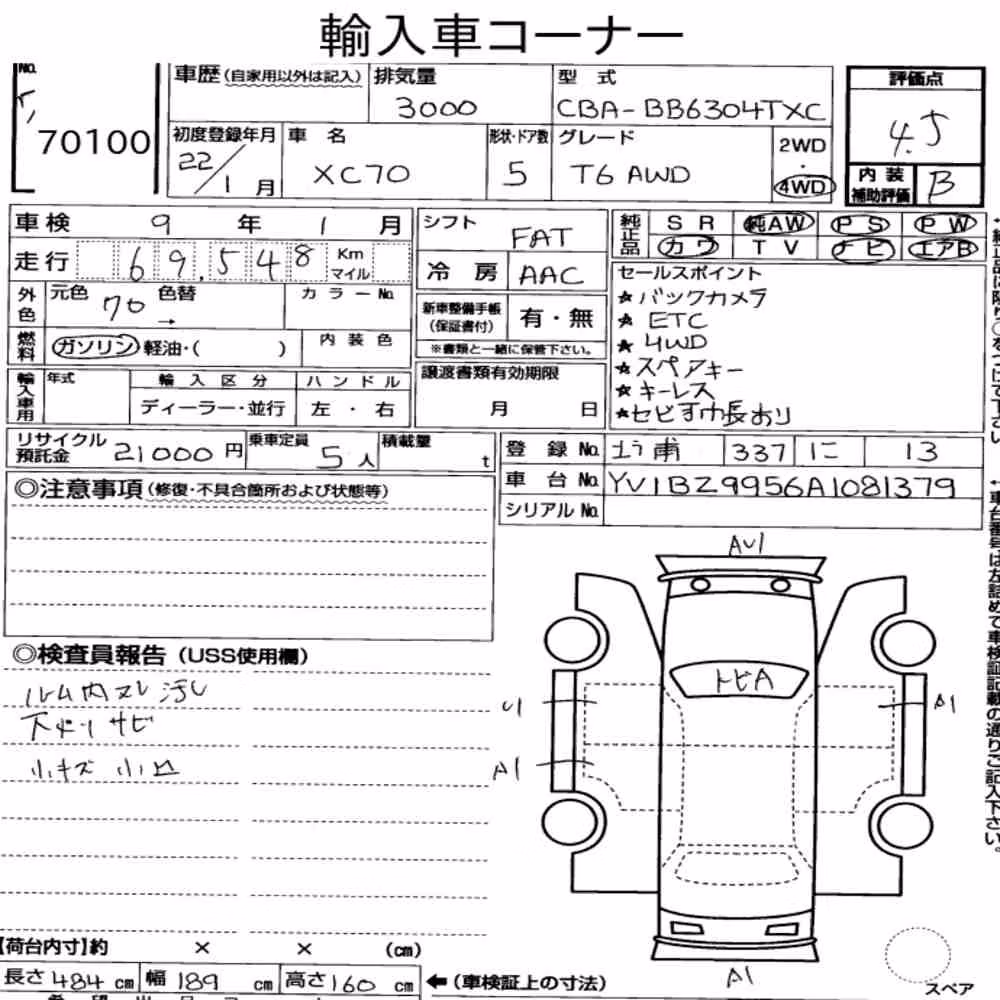 輸入車コーナー
No.
70100
車歴(自家用以外は記入)
排気量
3000
型 式
CBA-BB6304TXC
評価点
4.5
初度登録年月
22/1月
車 名
XC70
形状・ドア数
5
グレード
T6 AWD
2WD
・
4WD
内装
補助評価
B
車検 9 年 1 月
走行 69.548 Km
マイル
シフト
FAT
冷房 AAC
純正品
SR 純AW PS PW
カワ TV ナビ エアB
外色
元色
色替
→
カラーNo.
燃料
ガソリン 軽油・( )
内装色
新車整備手帳
(保証書付)
有・無
※書類と一緒に保管下さい。
セールスポイント
★バックカメラ
★ETC
★4WD
★スペアキー
★キーレス
輸入車用
年式
輸入区分
ディーラー・並行
ハンドル
左・右
譲渡書類有効期限
月 日
リサイクル
預託金
21000円
乗車定員
5人
積載量
t
登 録 No. 337 に 13
車 台 No. YV1BZ9956A1081379
シリアル No.
◎注意事項(修復・不具合箇所および状態等)
◎検査員報告(USS使用欄)
ルーム内スレ汚し
下廻りサビ
小キズ 小凹
AU1
トビA
U1
A1
A1
A1
スペア
【荷台内寸】約 × × (cm)
長さ484cm 幅189cm 高さ160cm
←(車検証上の寸法)
←車台番号は左詰めで車検証記載の通りご記入下さい。